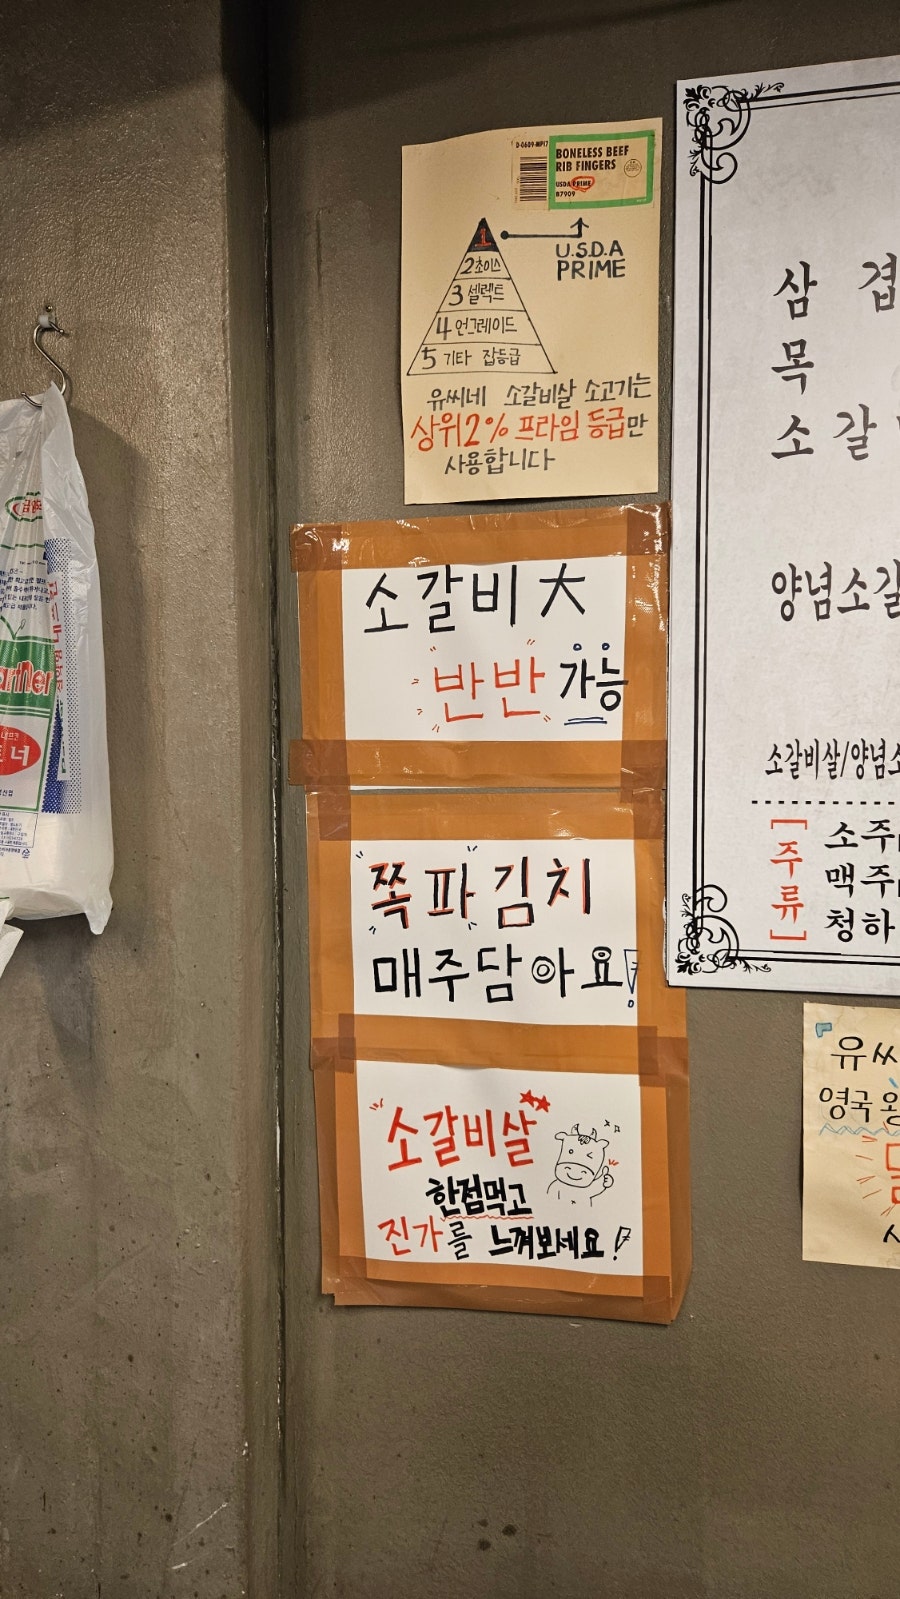 D-0609-MP17
BONELESS BEEF
RIB FINGERS
USDA PRIME
87909
1
U.S.D.A
PRIME
2 초이스
3 셀렉트
4 언그레이드
5 기타 잡등급
유씨네 소갈비살 소고기는
상위2% 프라임 등급만
사용합니다
소갈비 大
반반 가능
쪽파김치
매주담아요!
소갈비살
한점먹고
진가를 느껴보세요!
삼 겹
목
소 갈
양념소갈
소갈비살/양념소
[주류]
소주
맥주
청하
유씨
영국